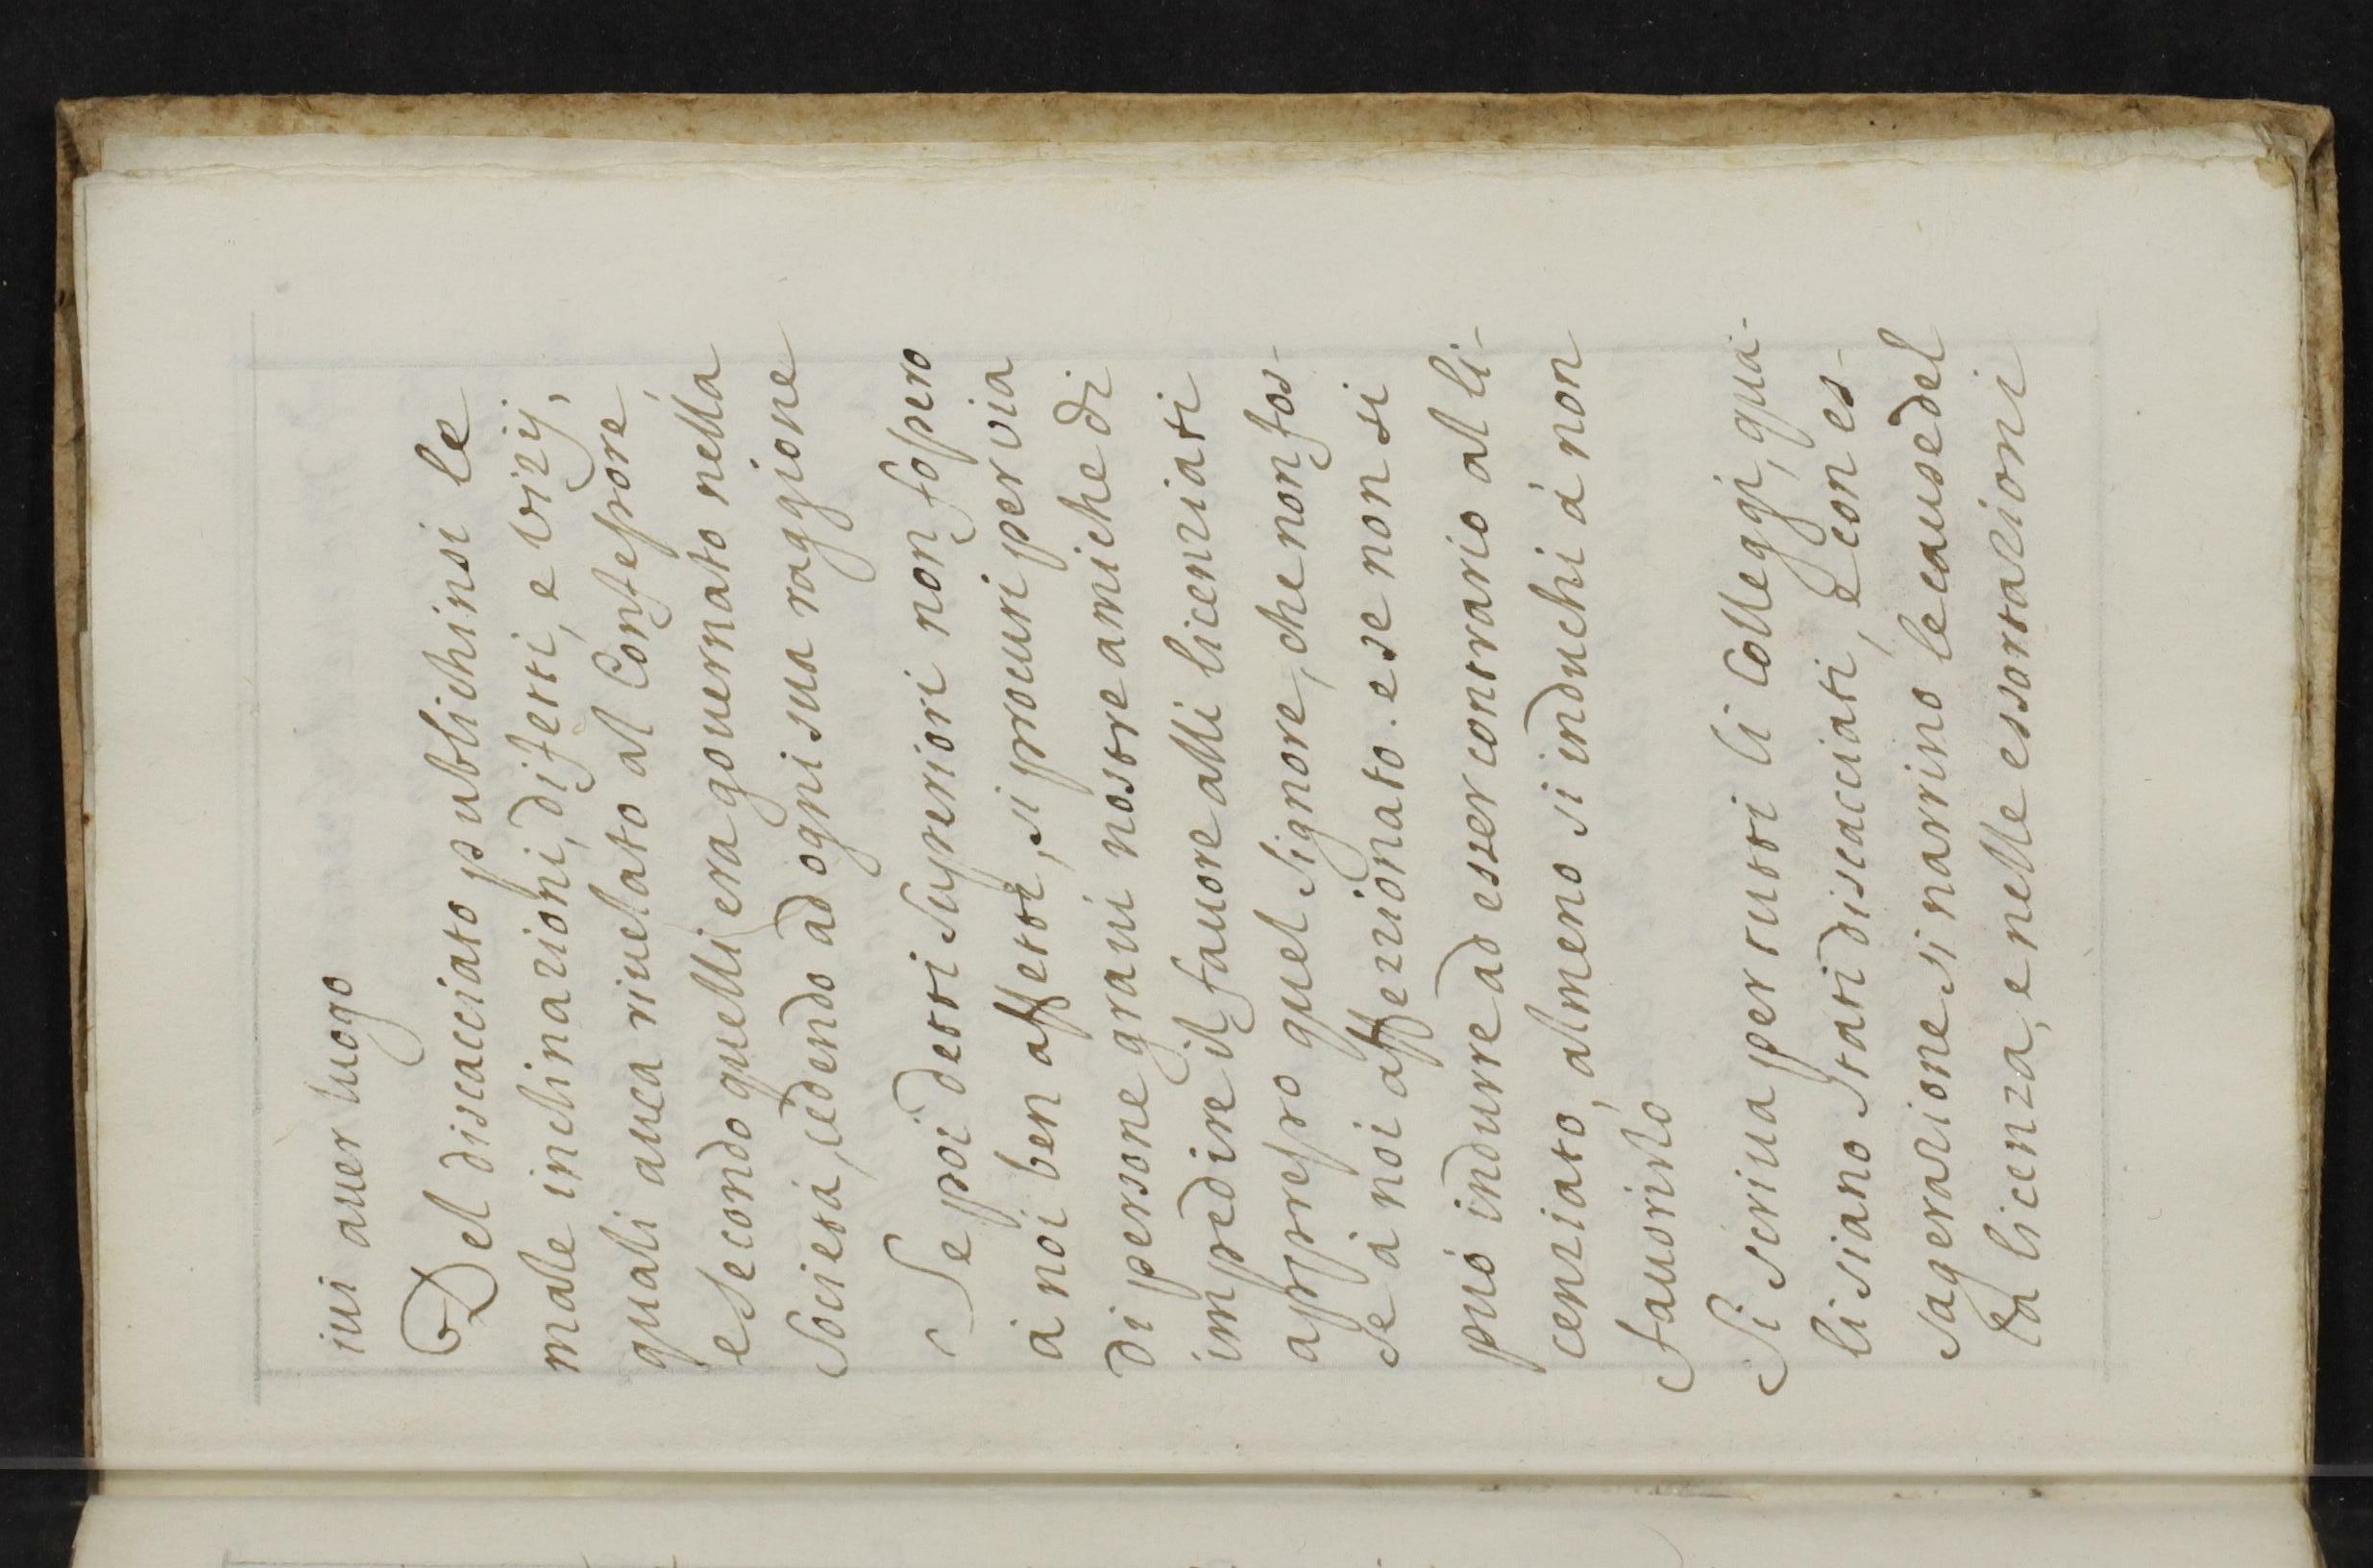 iui auer luogo
Del discacciato publichinsi le
male inclinazioni, difetti, e vizij,
quali auea riuelato al Confessore,
e secondo quelli era gouernato nella
Società, cedendo ad ogni sua raggione
Se poi detti Superiori non fossero
à noi ben affetti, si procuri per via
di persone graui nostre amiche di
impedire il fauore alli licenziati
appresso quel Signore, che non fos-
se à noi affezzionato. e se non si
può indurre ad esser contrario al li-
cenziato, almeno si induchi à non
fauorirlo
Si scriua per tutti li Colleggi, qua-
li siano stati discacciati, e con es-
sagerazione si narrino le cause del
la licenza, e nelle essortazioni